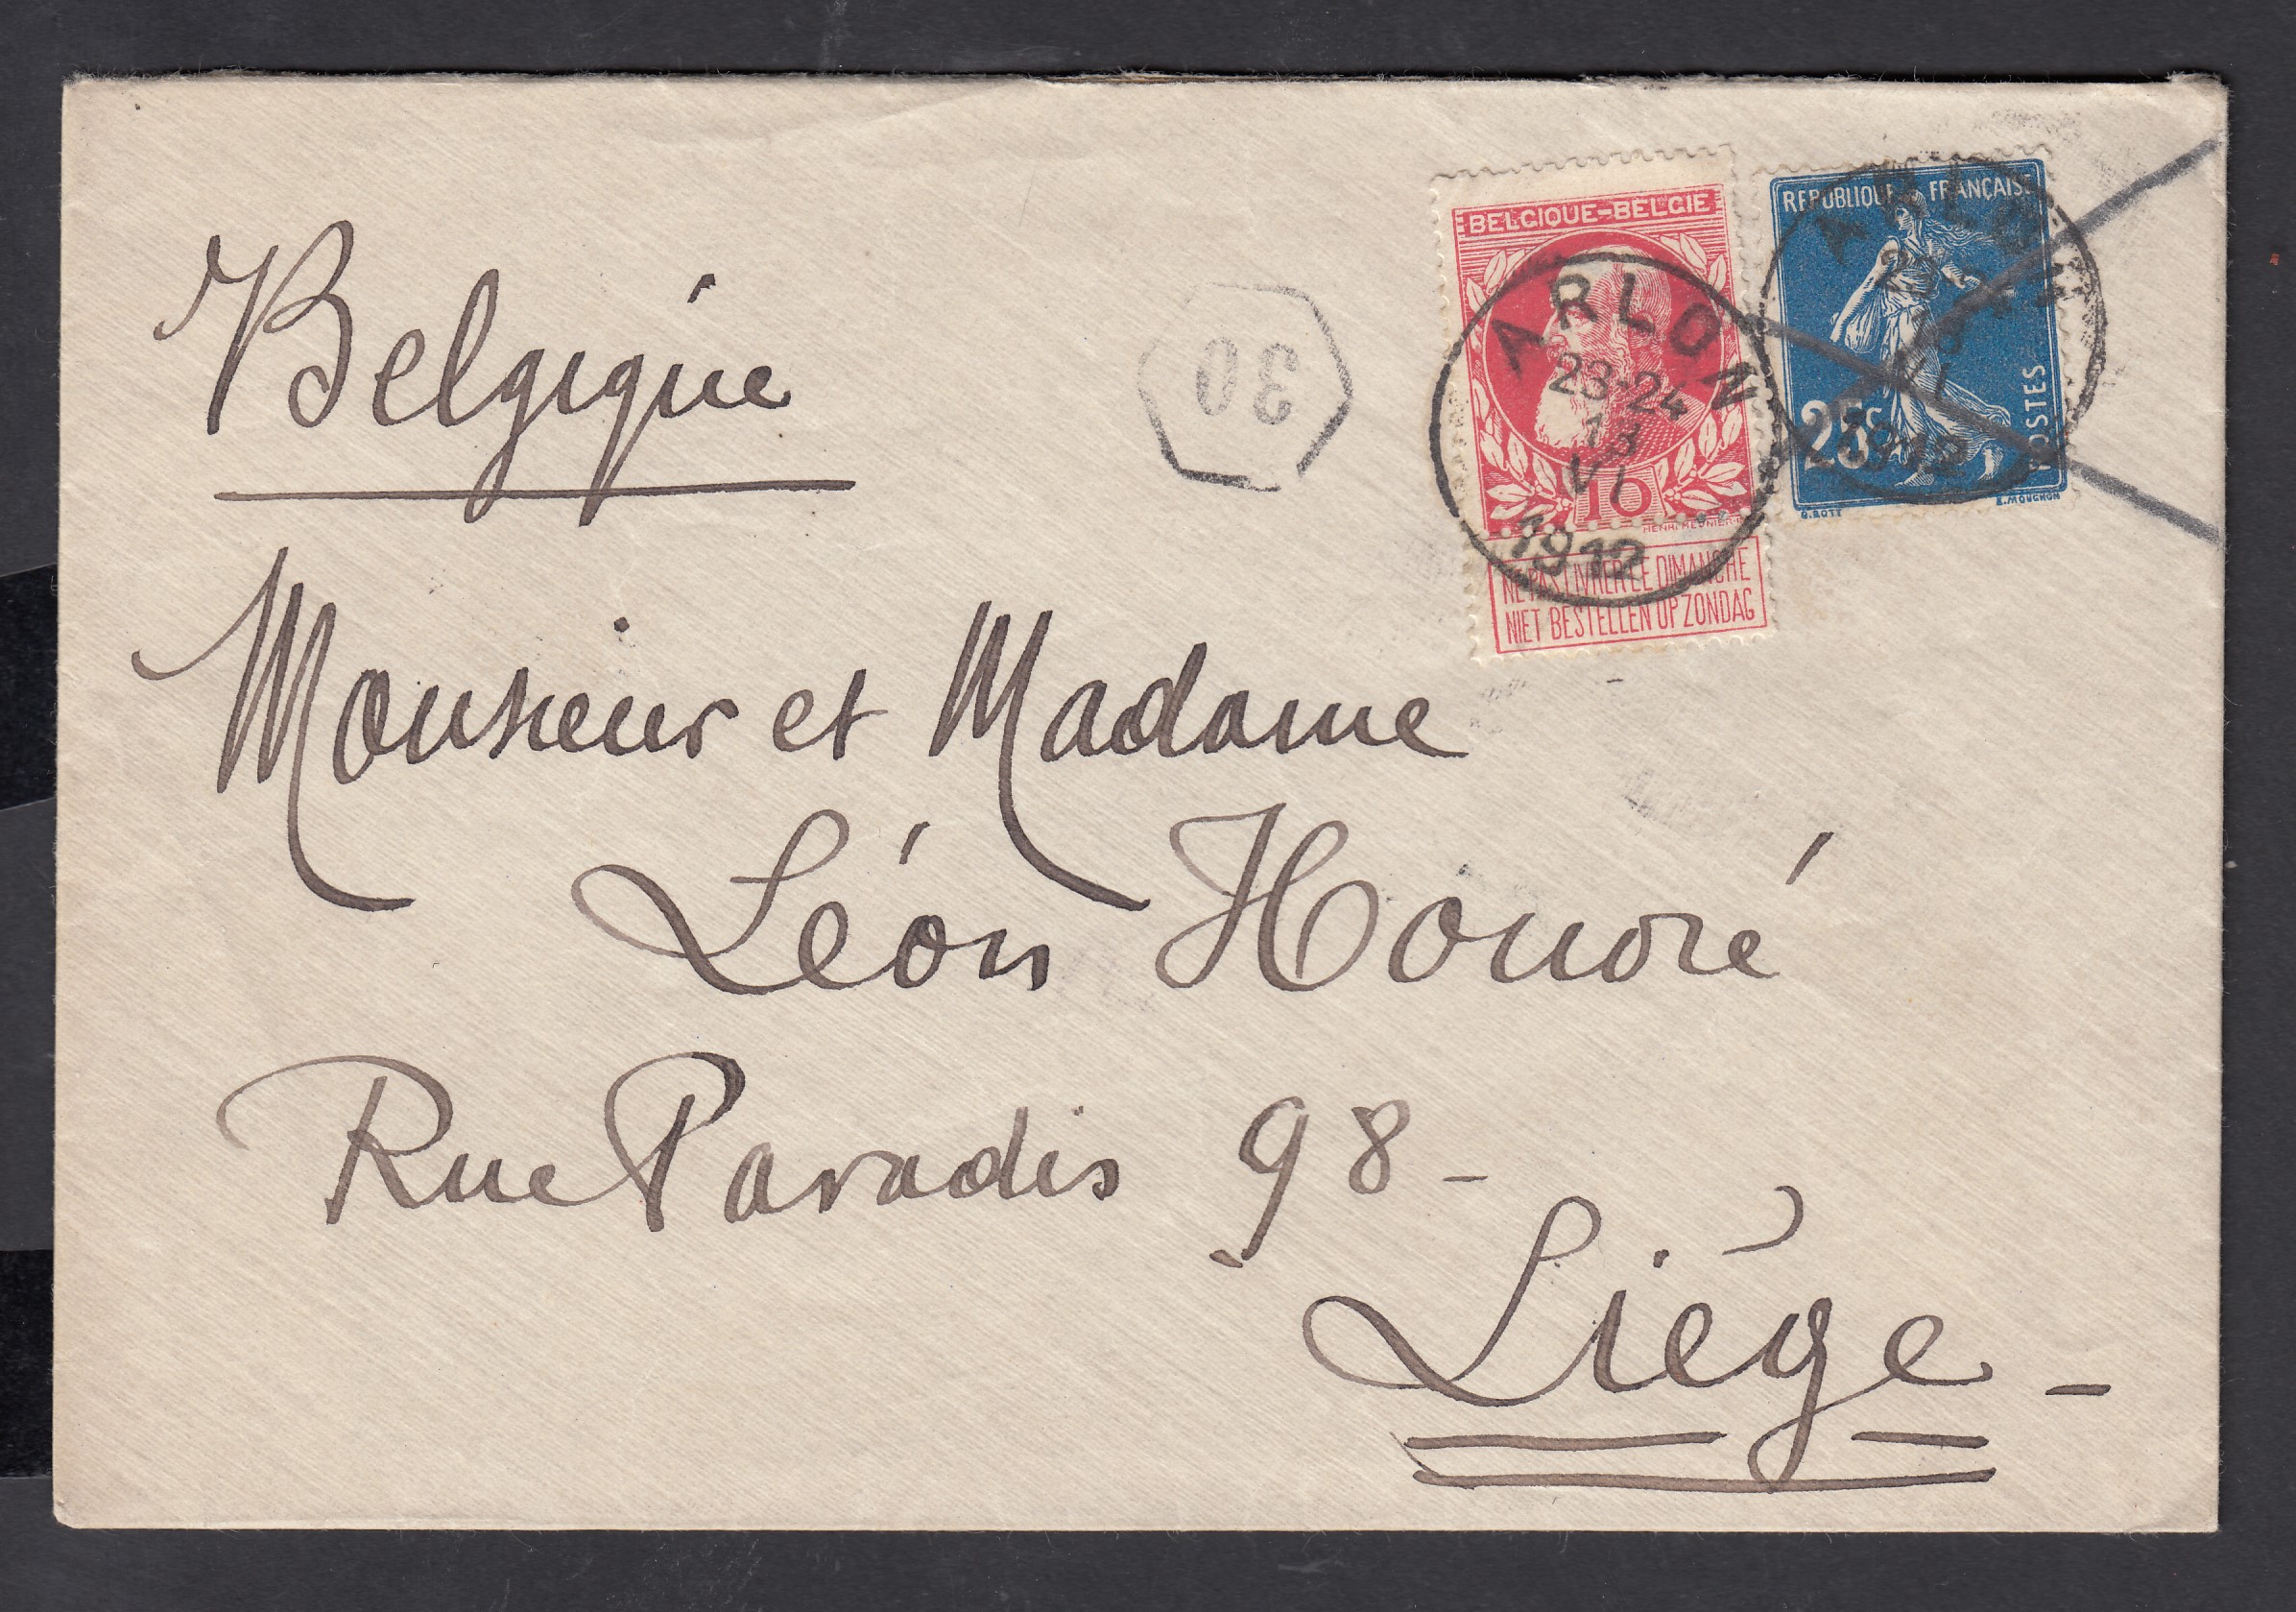 Belgique
30
BELGIQUE-BELGIE
ARLON
23-24
13
VI
1912
10
HENRI MEUNIER
NE PAS LIVRER LE DIMANCHE
NIET BESTELLEN OP ZONDAG
REPUBLIQUE FRANÇAISE
ARLON
13
VI
1912
25c
POSTES
O.ROTY
E.MOUCHON
Monsieur et Madame
Léon Honoré
Rue Paradis 98-
Liège-